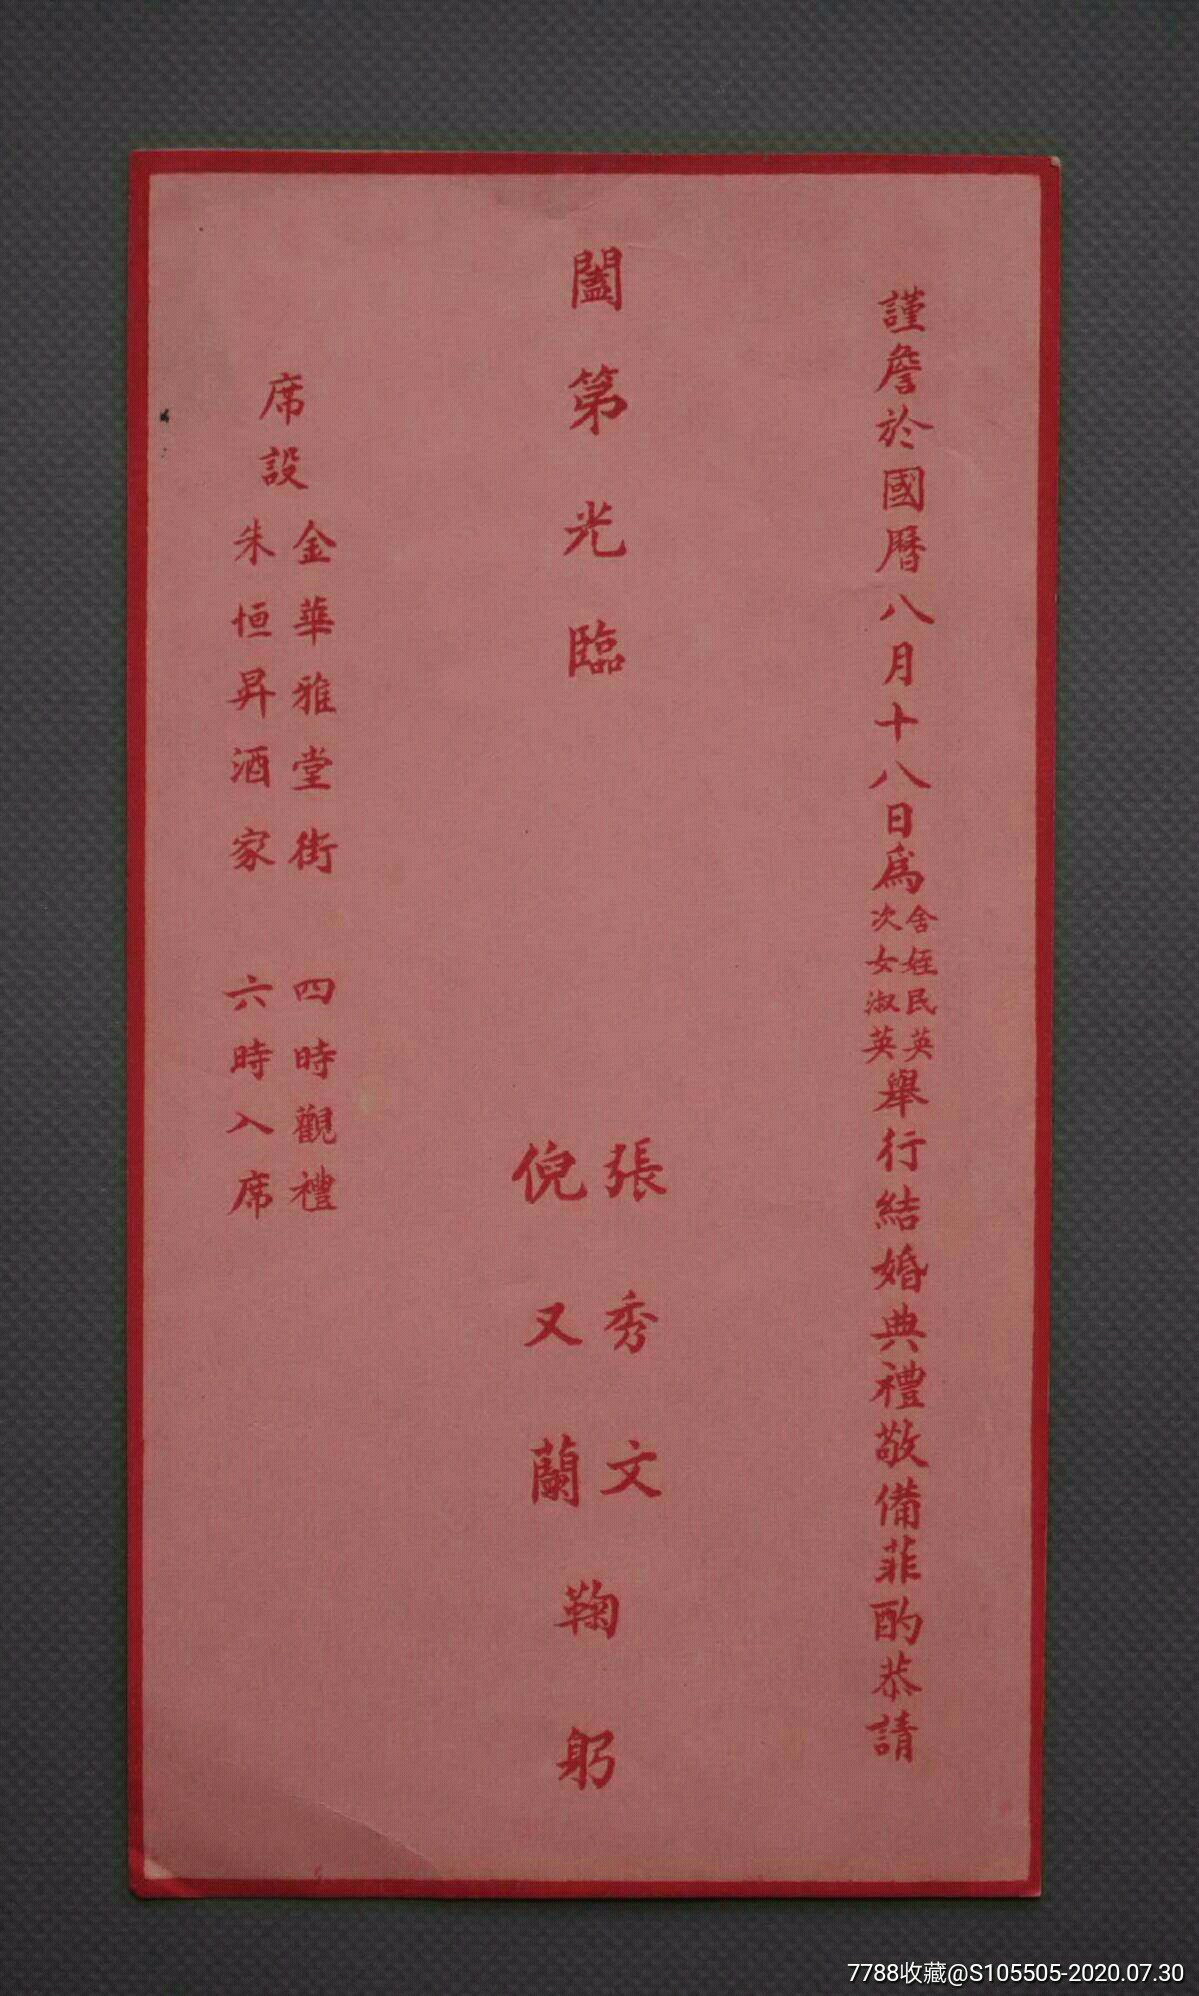 謹詹於國曆八月十八日爲
舍姪民英
次女淑英
舉行結婚典禮敬備菲酌恭請
闔第光臨
張秀文
倪又蘭
鞠躬
席設
金華雅堂街
朱恒昇酒家
四時觀禮
六時入席
7788收藏@S105505-2020.07.30